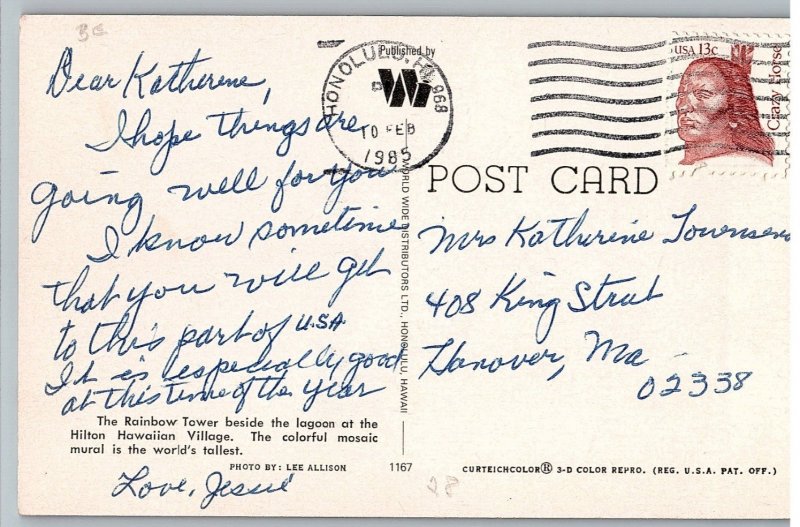 BE
Dear Katherene,
I hope things are
going well for you
I know sometime
that you will get
to this part of U.S.A.
It is especially good
at this time of the year
The Rainbow Tower beside the lagoon at the
Hilton Hawaiian Village. The colorful mosaic
mural is the world's tallest.
PHOTO BY: LEE ALLISON
Love, Jessie
Published by
WORLD WIDE DISTRIBUTORS LTD., HONOLULU, HAWAII
1167
HONOLULU, HI 968
10 FEB
1985
USA 13c
Crazy Horse
POST CARD
Mrs Katherine Townsend
408 King Street
Hanover, Ma
02338
CURTEICHCOLOR® 3-D COLOR REPRO. (REG. U.S.A. PAT. OFF.)